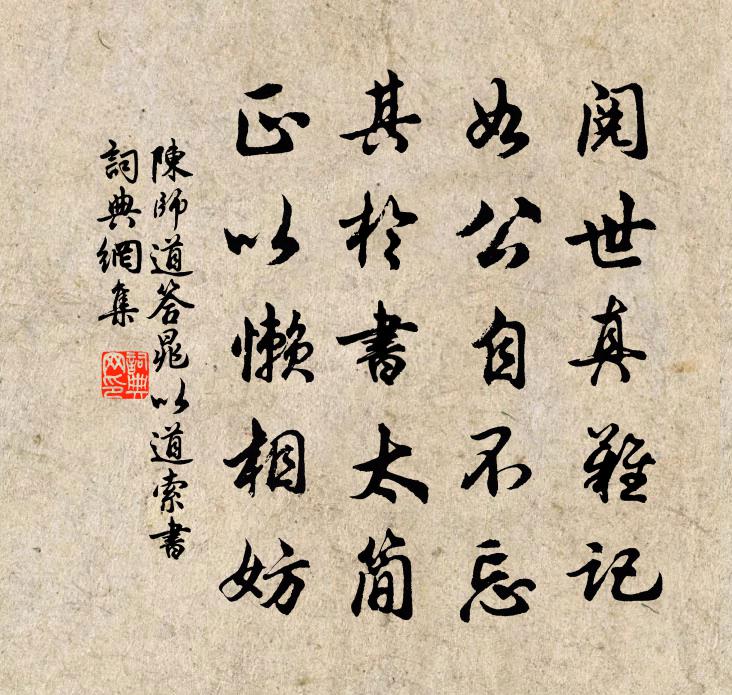 閱世真難記
如公自不忘
其於書太簡
正以懶相妨
陳師道答晁以道索書
詞典網集
詞典网印